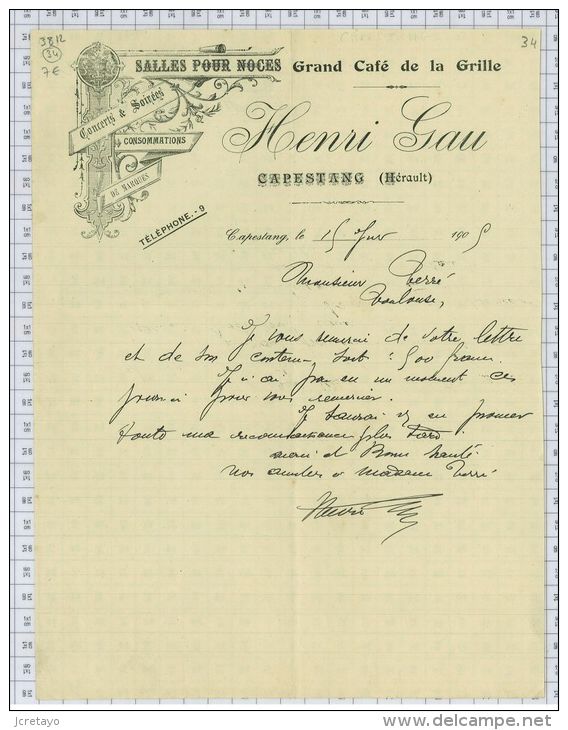 3812
34
7€
34
SALLES POUR NOCES
Grand Café de la Grille
Concerts & Soirées
CONSOMMATIONS
DE MARQUES
Henri Gau
CAPESTANG (Hérault)
TÉLÉPHONE.-9
Capestang, le 15 1905
Monsieur Verré
Toulouse,
Je vous remerci de votre lettre
et de son contenu soit : 500 francs
Je n'ai pas eu un moment ces
pour vous remercier.
Je vous en prouver
toute ma reconnaissance plus tard
merci et Bonne santé
nos amitiés a madame Verré
Henri
jcretayo
www.delcampe.net